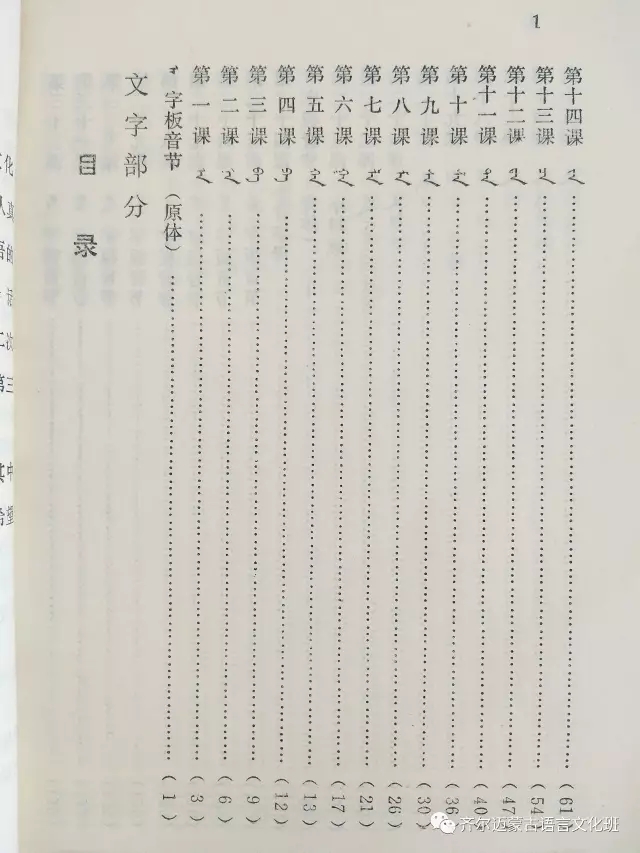 1
目录
文字部分
字板音节（原体）……（1）
第一课……（3）
第二课……（6）
第三课……（9）
第四课……（12）
第五课……（13）
第六课……（17）
第七课……（21）
第八课……（26）
第九课……（30）
第十课……（36）
第十一课……（40）
第十二课……（47）
第十三课……（54）
第十四课……（61）
齐尔迈蒙古语言文化班